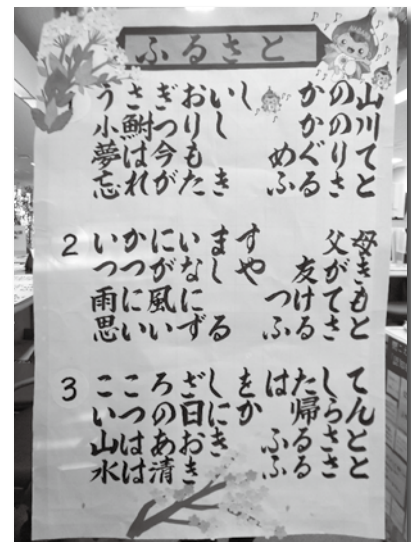 ふるさと
うさぎおいし かの山
小鮒つりし かの川
夢は今も めぐりて
忘れがたき ふるさと
2 いかにいます 父母
つつがなしや 友がき
雨に風に つけても
思いいずる ふるさと
3 こころざしを はたして
いつの日にか 帰らん
山はあおき ふるさと
水は清き ふるさと